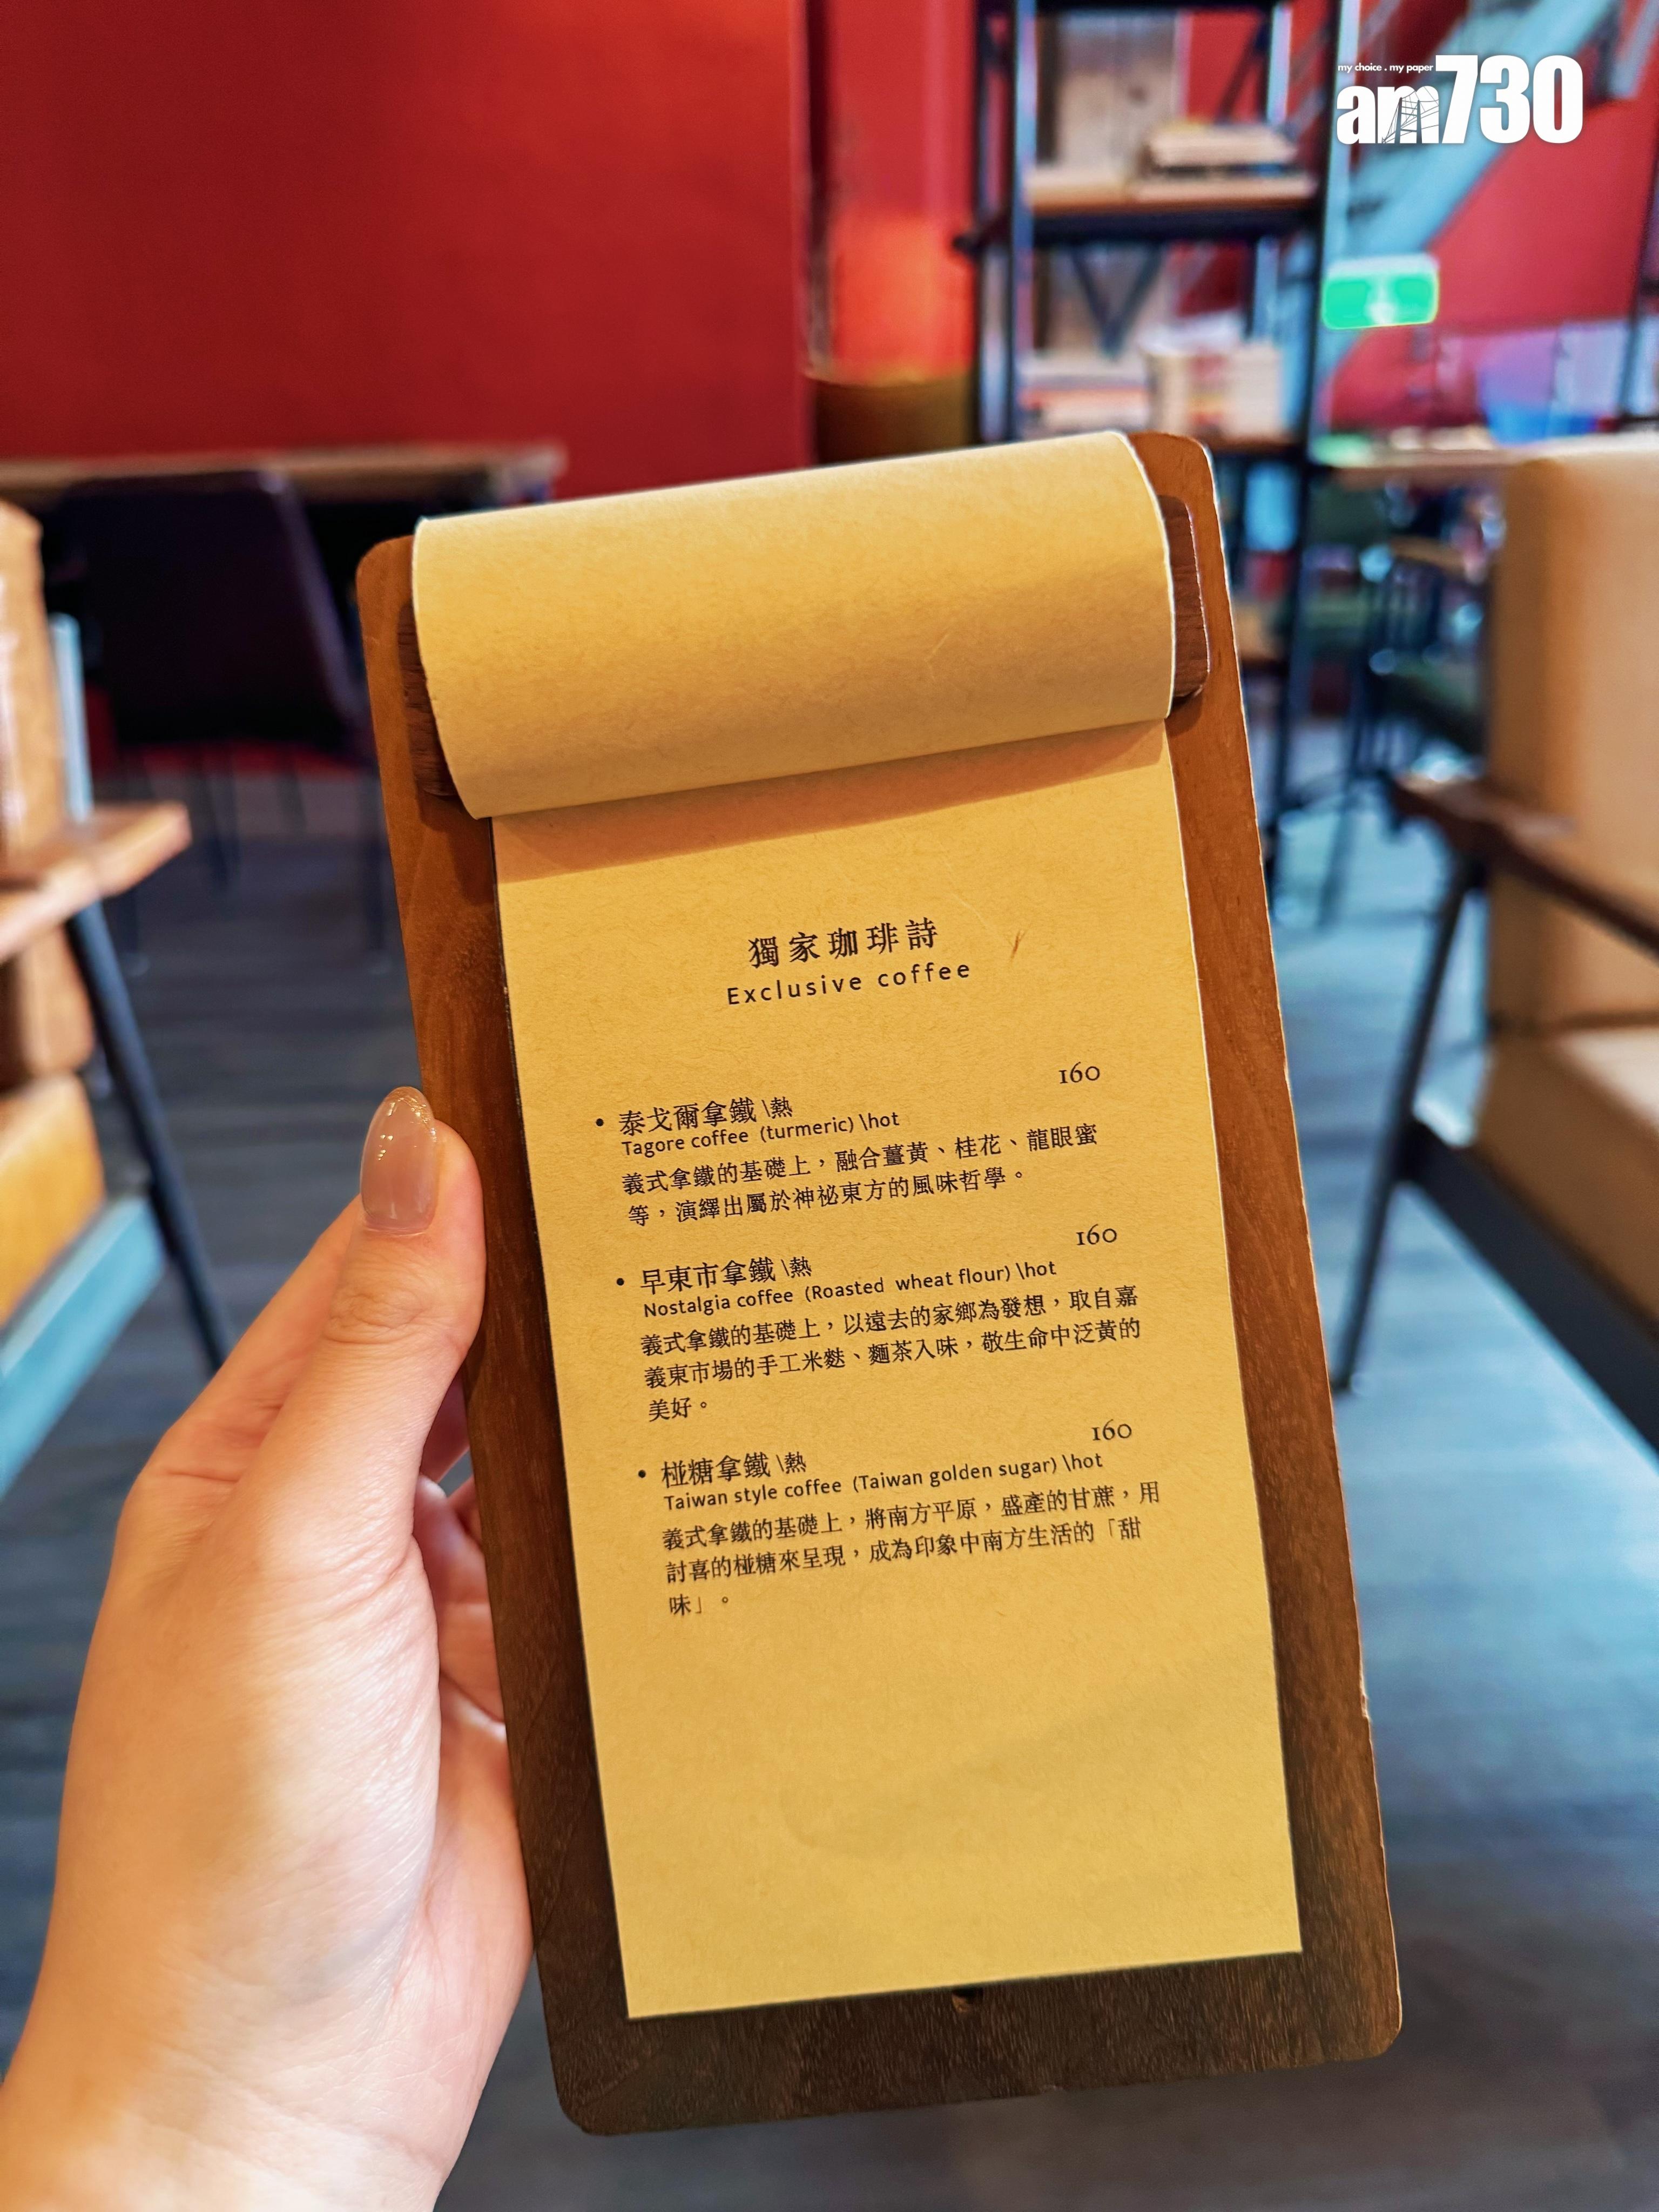 my choice . my paper
am730
獨家珈琲詩
Exclusive coffee
160
• 泰戈爾拿鐵 \熱
Tagore coffee (turmeric) \hot
義式拿鐵的基礎上，融合薑黃、桂花、龍眼蜜
等，演繹出屬於神祕東方的風味哲學。
160
• 早東市拿鐵 \熱
Nostalgia coffee (Roasted wheat flour) \hot
義式拿鐵的基礎上，以遠去的家鄉為發想，取自嘉
義東市場的手工米麩、麵茶入味，敬生命中泛黃的
美好。
160
• 椪糖拿鐵 \熱
Taiwan style coffee (Taiwan golden sugar) \hot
義式拿鐵的基礎上，將南方平原，盛產的甘蔗，用
討喜的椪糖來呈現，成為印象中南方生活的「甜
味」。